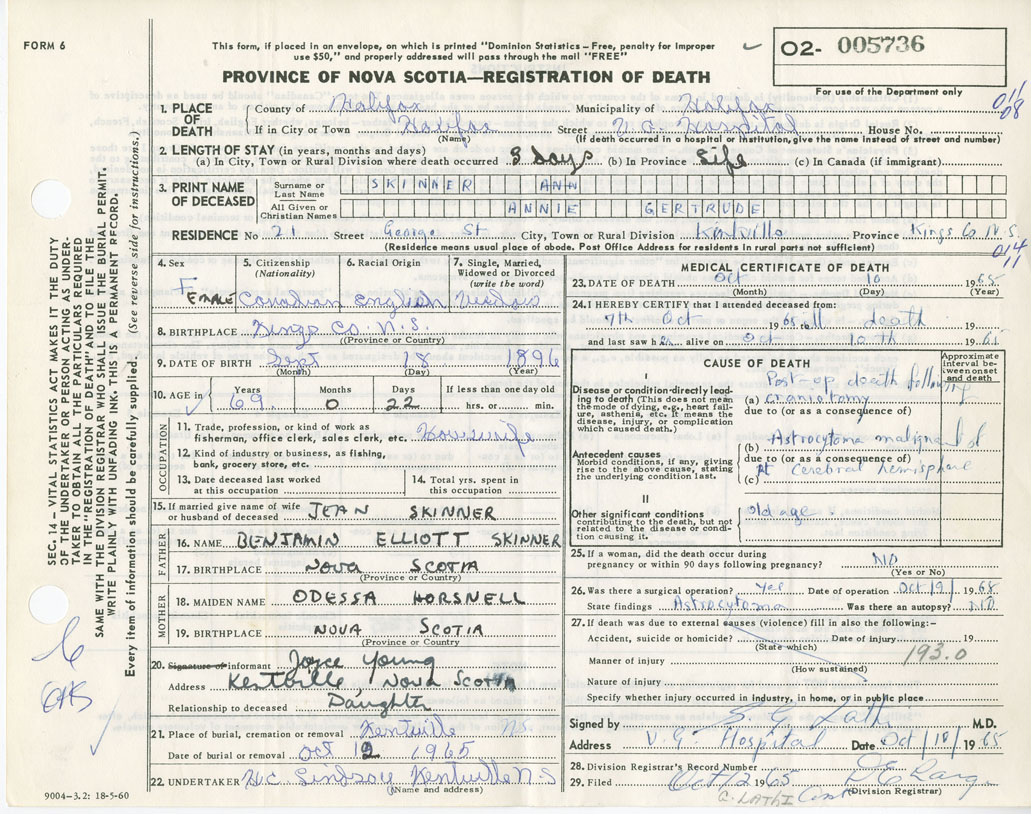 FORM 6
This form, if placed in an envelope, on which is printed "Dominion Statistics – Free, penalty for improper
use $50," and properly addressed will pass through the mail "FREE"
PROVINCE OF NOVA SCOTIA—REGISTRATION OF DEATH
02- 005736
For use of the Department only
011/08
1. PLACE OF DEATH
County of Halifax Municipality of Halifax
If in City or Town Halifax Street V.G. Hospital House No.
(Name) (If death occurred in a hospital or institution, give the name instead of street and number)
2. LENGTH OF STAY (in years, months and days)
(a) In City, Town or Rural Division where death occurred 3 Days (b) In Province Life (c) In Canada (if immigrant)
3. PRINT NAME OF DECEASED
Surname or Last Name SKINNER ANN
All Given or Christian Names ANNIE GERTRUDE
RESIDENCE No 21 Street George St City, Town or Rural Division Kentville Province Kings Co N.S.
(Residence means usual place of abode. Post Office Address for residents in rural parts not sufficient)
014/11
4. Sex Female
5. Citizenship (Nationality) Canadian
6. Racial Origin English
7. Single, Married, Widowed or Divorced (write the word) Widow
8. BIRTHPLACE Kings Co. N.S.
(Province or Country)
9. DATE OF BIRTH Sept 18 1896
(Month) (Day) (Year)
10. AGE in Years 69 Months 0 Days 22 If less than one day old hrs. or min.
OCCUPATION
11. Trade, profession, or kind of work as fisherman, office clerk, sales clerk, etc. Housewife
12. Kind of industry or business, as fishing, bank, grocery store, etc.
13. Date deceased last worked at this occupation
14. Total yrs. spent in this occupation
15. If married give name of wife or husband of deceased JEAN SKINNER
FATHER
16. NAME BENJAMIN ELLIOTT SKINNER
17. BIRTHPLACE NOVA SCOTIA
(Province or Country)
MOTHER
18. MAIDEN NAME ODESSA HORSNELL
19. BIRTHPLACE NOVA SCOTIA
(Province or Country)
20. Signature of informant Joyce Young
Address Kentville, Nova Scotia
Relationship to deceased Daughter
21. Place of burial, cremation or removal Kentville N.S.
Date of burial or removal Oct 12 1965
22. UNDERTAKER W.C. Lindsay Kentville N S
(Name and address)
MEDICAL CERTIFICATE OF DEATH
23. DATE OF DEATH Oct 10 1965
(Month) (Day) (Year)
24. I HEREBY CERTIFY that I attended deceased from:
7th Oct 1965 to death
and last saw h alive on Oct 10th 1965
CAUSE OF DEATH
Approximate interval between onset and death
I
Disease or condition directly leading to death (This does not mean the mode of dying, e.g., heart failure, asthenia, etc. It means the disease, injury, or complication which caused death.)
(a) Post-op death following craniotomy
due to (or as a consequence of)
Antecedent causes
Morbid conditions, if any, giving rise to the above cause, stating the underlying condition last.
(b) Astrocytoma malignant of
due to (or as a consequence of)
(c) Rt Cerebral hemisphere
II
Other significant conditions contributing to the death, but not related to the disease or condition causing it.
old age.
25. If a woman, did the death occur during pregnancy or within 90 days following pregnancy? NO
(Yes or No)
26. Was there a surgical operation? Yes Date of operation Oct / 9 / 1965
State findings Astrocytoma Was there an autopsy? NO
27. If death was due to external causes (violence) fill in also the following:–
Accident, suicide or homicide? Date of injury 19
(State which)
193.0
Manner of injury
(How sustained)
Nature of injury
Specify whether injury occurred in Industry, in home, or in public place
Signed by S. G. Lathi M.D.
Address V. G. Hospital Date Oct / 10 / 1965
28. Division Registrar's Record Number
29. Filed Oct 12 1965
(Division Registrar)
G. LATHI
SEC. 14 – VITAL STATISTICS ACT MAKES IT THE DUTY
OF THE UNDERTAKER OR PERSON ACTING AS UNDER-
TAKER TO OBTAIN ALL THE PARTICULARS REQUIRED
IN THE "REGISTRATION OF DEATH" AND TO FILE THE
SAME WITH THE DIVISION REGISTRAR WHO SHALL ISSUE THE BURIAL PERMIT.
WRITE PLAINLY WITH UNFADING INK. THIS IS A PERMANENT RECORD.
Every item of information should be carefully supplied. (See reverse side for instructions.)
9004–3.2: 18-5-60